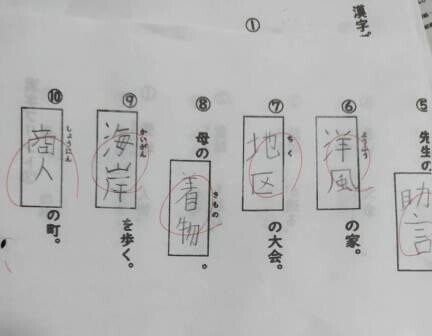 漢字
①
⑤ 先生の助言
⑥ 洋風の家。
ようふう
⑦ 地区の大会。
ちく
⑧ 母の着物。
きもの
⑨ 海岸を歩く。
かいがん
⑩ 商人の町。
しょうにん